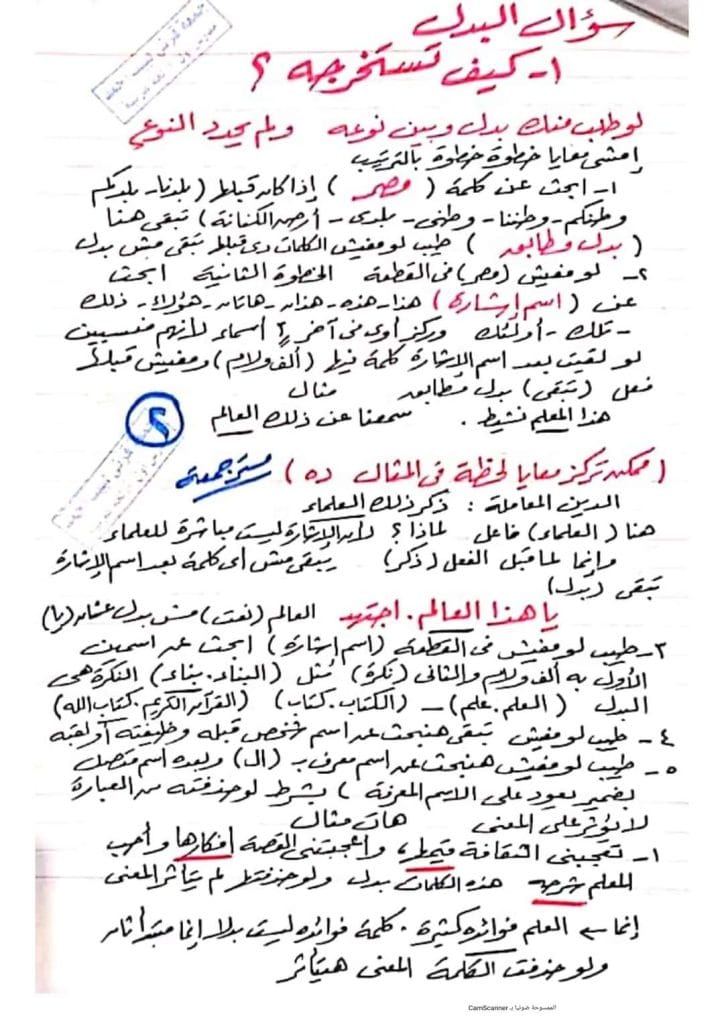 سؤال البدل
١- كيف تستخرجه ؟
لو طلب منك بدل وبين نوعه ولم يحدد النوع
إمشى معايا خطوة خطوة بالترتيب
١- ابحث عن كلمة ( مصر ) إذا كان قبلها ( بلدنا - بلدكم
وطنكم - وطننا - وطنى - بلدى - أرض الكنانة ) تبقى هنا
( بدل مطابق ) طيب لو مفيش الكلمات دى قبلها تبقى مش بدل
٢- لو مفيش (مصر) فى القطعة الخطوة الثانية ابحث
عن ( اسم إشارة ) هذا - هذه - هذان - هاتان - هؤلاء - ذلك
- تلك - أولئك وركز أوى فى آخر ٢ أسماء لأنهم منسيين
لو لقيت بعد اسم الإشارة كلمة فيها ( ألف ولام ) ومفيش قبلها
فعل ( تبقى ) بدل مطابق مثال
هذا المعلم نشيط . سمعنا عن ذلك العالم
٢
( ممكن تركز معايا لحظة فى المثال ده )
الدين المعاملة : ذكر ذلك العلماء
هنا ( العلماء ) فاعل لماذا ؟ لأن الإشارة ليست مباشرة للعلماء
وإنما لما قبل الفعل ( ذكر ) يبقى مش أى كلمة بعد اسم الإشارة
تبقى (بدل)
يا هذا العالم . اجتهد العالم (نعت) مش بدل عشان (يا)
٣- طيب لو مفيش فى القطعة (اسم إشارة) ابحث عن اسمين
الأول به ألف ولام والثانى (نكرة) مثل (البناء . بناء) النكرة هى
البدل (العلم . علم) - (الكتاب . كتاب) (القرآن الكريم . كتاب الله)
٤- طيب لو مفيش تبقى هنبحث عن اسم شخص قبله وظيفته أو لقبه
٥- طيب لو مفيش هنبحث عن اسم معرف بـ (ال) وبعده اسم متصل
بضمير يعود على الاسم المعرفة ) بشرط لو حذفته من العبارة
لا يؤثر على المعنى هات مثال
١- تعجبنى الثقافة قيمها ، وأعجبتنى القصة أفكارها وأحب
المعلم شرحه هذه الكلمات بدل ولو حذفتها لم يتأثر المعنى
إنما العلم فوائده كثيرة . كلمة فوائده ليست بدلا إنما مبتدأ ثان
ولو حذفت الكلمة المعنى هيتأثر
الممسوحة ضوئيا بـ CamScanner